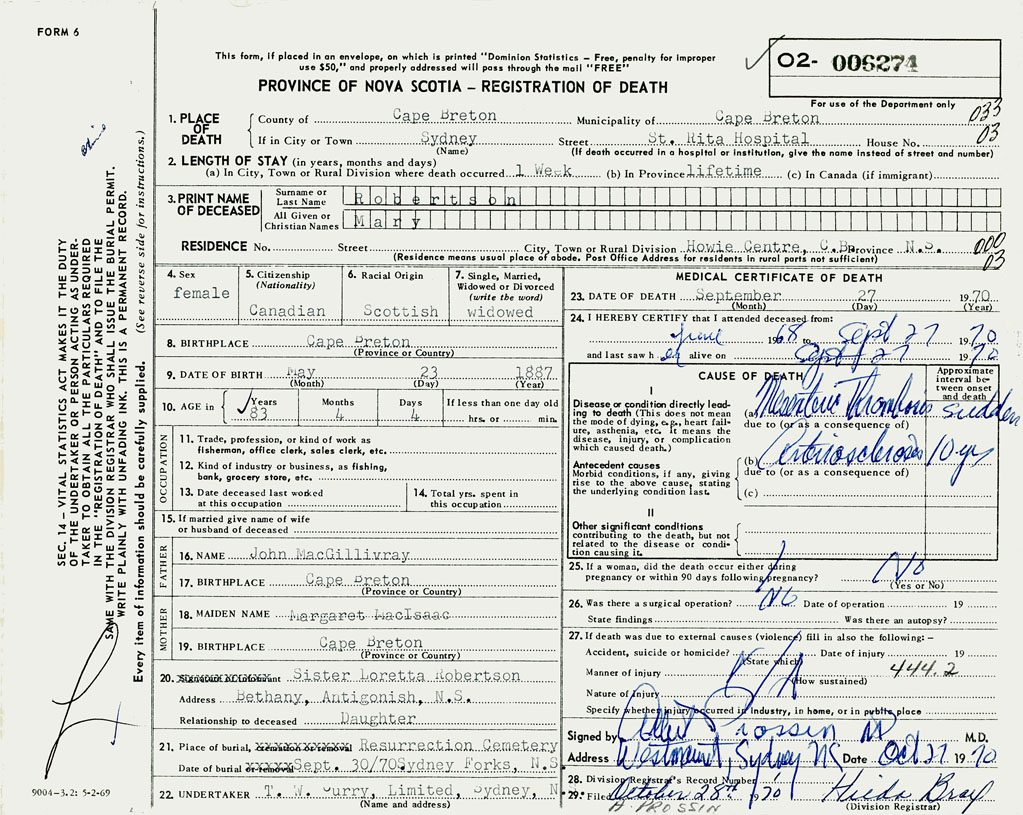 FORM 6
This form, if placed in an envelope, on which is printed "Dominion Statistics – Free, penalty for improper
use $50," and properly addressed will pass through the mail "FREE"
02- 006274
PROVINCE OF NOVA SCOTIA – REGISTRATION OF DEATH
For use of the Department only
033
1. PLACE OF DEATH
County of Cape Breton Municipality of Cape Breton
03
If in City or Town Sydney Street St. Rita Hospital House No.
(Name) (If death occurred in a hospital or institution, give the name instead of street and number)
2. LENGTH OF STAY (in years, months and days)
(a) In City, Town or Rural Division where death occurred 1 Week (b) In Province lifetime (c) In Canada (if immigrant)
3. PRINT NAME OF DECEASED
Surname or Last Name Robertson
All Given or Christian Names Mary
RESIDENCE No. Street City, Town or Rural Division Howie Centre, C.B. Province N.S. 000
(Residence means usual place of abode. Post Office Address for residents in rural parts not sufficient) 03
4. Sex
female
5. Citizenship
(Nationality)
Canadian
6. Racial Origin
Scottish
7. Single, Married,
Widowed or Divorced
(write the word)
widowed
8. BIRTHPLACE Cape Breton
(Province or Country)
9. DATE OF BIRTH May 23 1887
(Month) (Day) (Year)
10. AGE in Years Months Days If less than one day old
83 4 4 hrs. or min.
OCCUPATION
11. Trade, profession, or kind of work as
fisherman, office clerk, sales clerk, etc.
12. Kind of industry or business, as fishing,
bank, grocery store, etc.
13. Date deceased last worked
at this occupation
14. Total yrs. spent in
this occupation
15. If married give name of wife
or husband of deceased
FATHER
16. NAME John MacGillivray
17. BIRTHPLACE Cape Breton
(Province or Country)
MOTHER
18. MAIDEN NAME Margaret MacIsaac
19. BIRTHPLACE Cape Breton
(Province or Country)
20. Signature of informant Sister Loretta Robertson
Address Bethany, Antigonish, N.S.
Relationship to deceased Daughter
21. Place of burial, cremation or removal Resurrection Cemetery
Date of burial or removal Sept. 30/70 Sydney Forks, N.S
22. UNDERTAKER T. W. Curry, Limited, Sydney, N.
(Name and address)
MEDICAL CERTIFICATE OF DEATH
23. DATE OF DEATH September 27 1970
(Month) (Day) (Year)
24. I HEREBY CERTIFY that I attended deceased from:
June 1968 to Sept 27 1970
and last saw h er alive on Sept 27 1970
CAUSE OF DEATH
Approximate
interval be-
tween onset
and death
I
Disease or condition directly lead-
ing to death (This does not mean
the mode of dying, e.g., heart fail-
ure, asthenia, etc. It means the
disease, injury, or complication
which caused death.)
(a) Mesenteric Thrombosis sudden
due to (or as a consequence of)
Antecedent causes
Morbid conditions, if any, giving
rise to the above cause, stating
the underlying condition last.
(b) Arteriosclerosis 10 yr
due to (or as a consequence of)
(c)
II
Other significant conditions
contributing to the death, but not
related to the disease or condi-
tion causing it.
25. If a woman, did the death occur either during
pregnancy or within 90 days following pregnancy? No
(Yes or No)
26. Was there a surgical operation? No Date of operation 19
State findings Was there an autopsy?
27. If death was due to external causes (violence) fill in also the following: –
Accident, suicide or homicide? Date of injury 19
(State which)
Manner of injury N/A 444.2
(How sustained)
Nature of injury
Specify whether injury occurred in industry, in home, or in public place
Signed by Albert Prossin M.D.
Address Westmount, Sydney NS Date Oct 27 1970
28. Division Registrar's Record Number
29. Filed October 28th 1970 Hilda Bray
A. PROSSIN (Division Registrar)
9004-3.2: 5-2-69
SEC. 14 – VITAL STATISTICS ACT MAKES IT THE DUTY
OF THE UNDERTAKER OR PERSON ACTING AS UNDER-
TAKER TO OBTAIN ALL THE PARTICULARS REQUIRED
IN THE "REGISTRATION OF DEATH" AND TO FILE THE
SAME WITH THE DIVISION REGISTRAR WHO SHALL ISSUE THE BURIAL PERMIT.
WRITE PLAINLY WITH UNFADING INK. THIS IS A PERMANENT RECORD.
Every item of information should be carefully supplied. (See reverse side for instructions.)